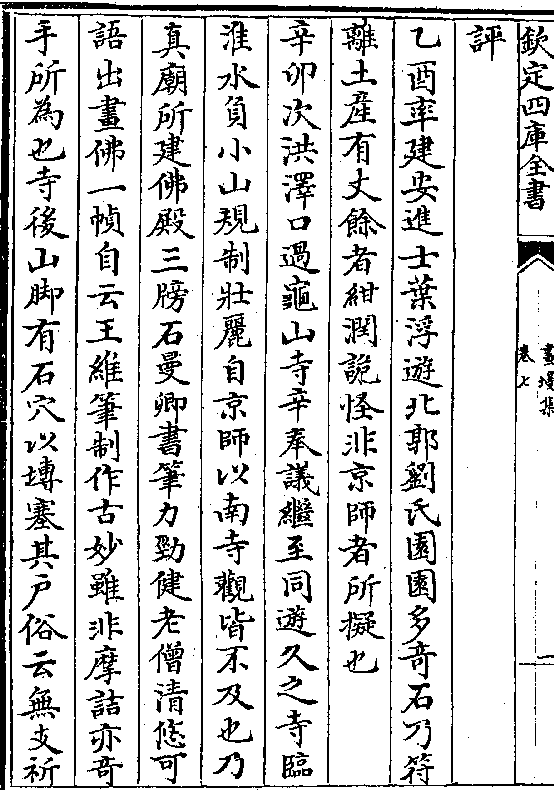 欽定四庫全書
畫墁集
卷七
評
乙酉率建安進士葉浮遊北郭劉氏園園多奇石乃符
離土産有丈餘者紺潤詭怪非京師者所擬也
辛卯次洪澤口過龜山寺辛奉議繼至同遊久之寺臨
淮水負小山規制壯麗自京師以南寺觀皆不及也乃
真廟所建佛殿三牓石曼卿書筆力勁健老僧清悠可
語出畫佛一幀自云王維筆制作古妙雖非摩詰亦奇
手所為也寺後山脚有石穴以塼塞其户俗云無支祈